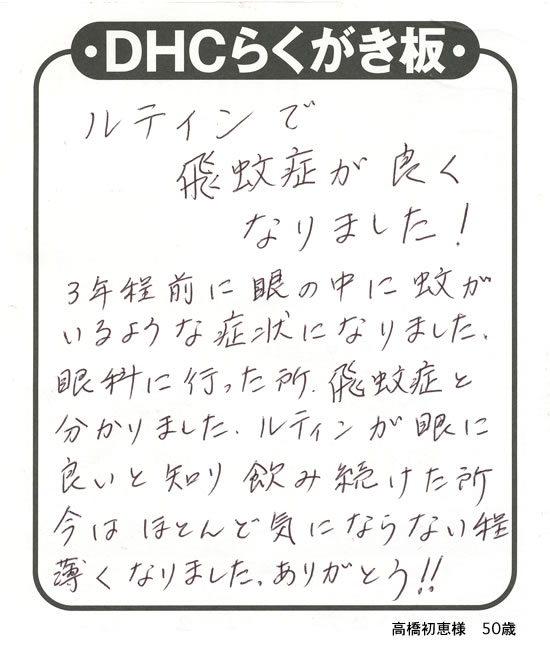 ・DHCらくがき板・
ルティンで
飛蚊症が良く
なりました!
3年程前に眼の中に蚊が
いるような症状になりました、
眼科に行った所、飛蚊症と
分かりました、ルティンが眼に
良いと知り飲み続けた所
今はほとんど気にならない程
薄くなりました、ありがとう!!
高橋初恵様 50歳